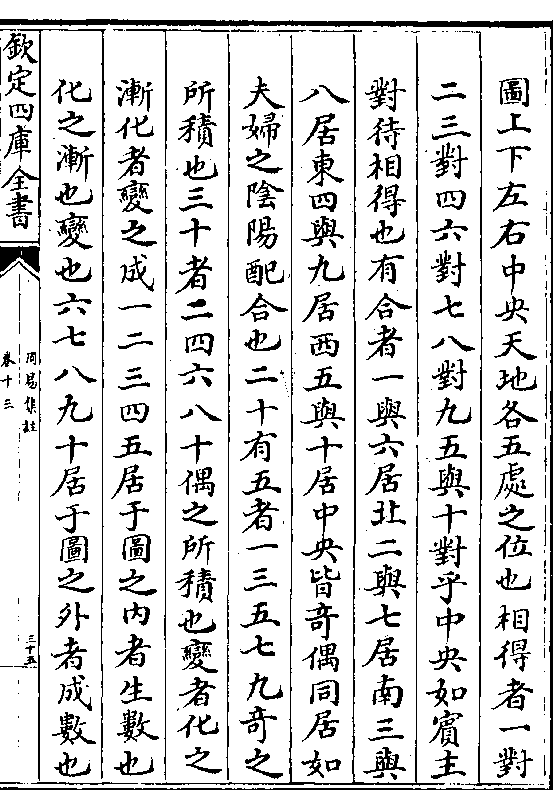 圖上下左右中央天地各五處之位也相得者一對
二三對四六對七八對九五與十對乎中央如賓主
對待相得也有合者一與六居北二與七居南三與
八居東四與九居西五與十居中央皆奇偶同居如
夫婦之陰陽配合也二十有五者一三五七九奇之
所積也三十者二四六八十偶之所積也變者化之
漸化者變之成一二三四五居于圖之内者生數也
化之漸也變也六七八九十居于圖之外者成數也
欽定四庫全書
周易集註
卷十三
三十五